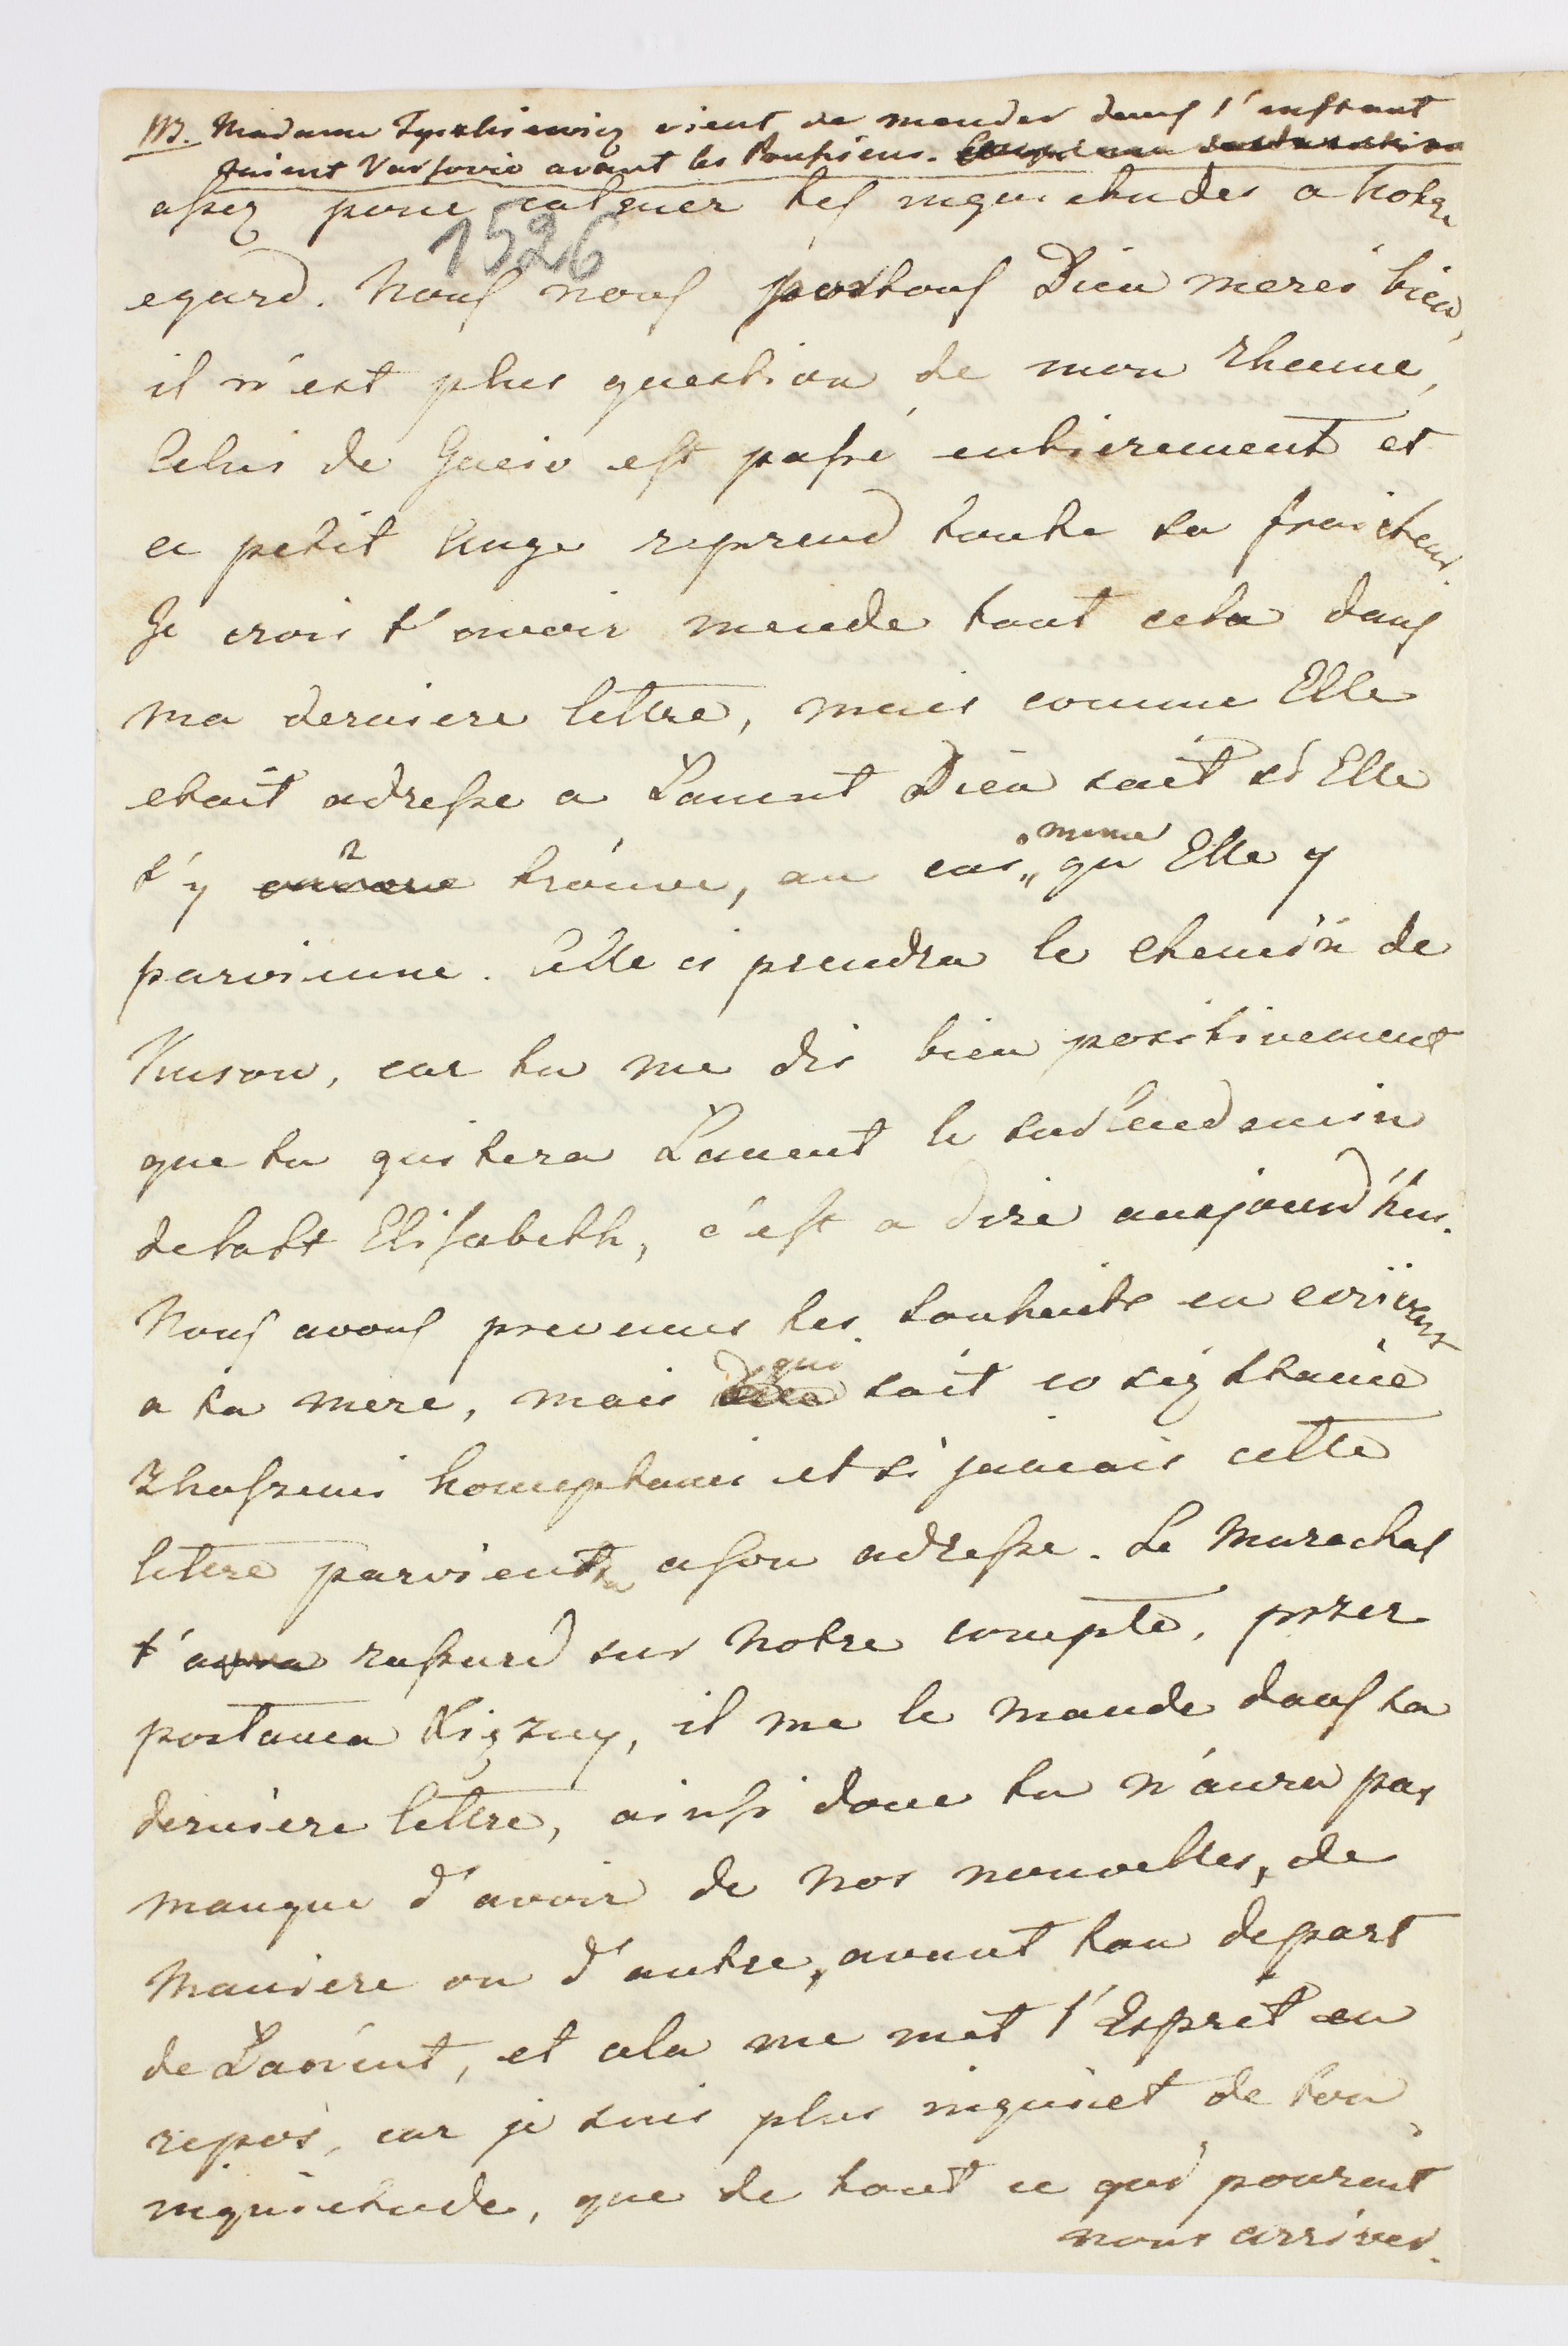 NB. Madame Tyszkiewicz vient de mander dans l'instant
avant les
assez pour calquer tes inquietudes a notre
1526
egard. Nous nous portous Dieu merci bien,
il n'est plus question de mon rhume,
Celui de est passé entierement et
ce petit Ange reprend toute sa fraicheur.
Je crois t'avoir mende tout cela dans
ma derniere lettre, mais comme Elle
etait adresse a Lancut Dieu sait si Elle
t'y trouve, au cas "meme" qu Elle y
parvienne. Celle ci prendra le chemin de
car tu me dis bien positivement
que tu quitera Lancut le surlendemain
de la St Elisabeth, c'est a dire aujourd'hui.
Nous avons prevenus tes souhaits en ecrivant
a ta mere, mais qui sait co się stanie
et si jamais cette
lettre parviendra a son adresse. Le Marechal
t'aura rassuré sur notre compte, przez
il me le mande dans sa
derniere lettre, ainsi donc tu n'aura pas
manque d'avoir de nos nouvelles, de
maniere ou d'autre, avant ton depart
de Lancut, et cela me met l'Esprit en
repos, car je suis plus inquiet de ton
inquietude, que de tout ce qui pourait
nous arriver.